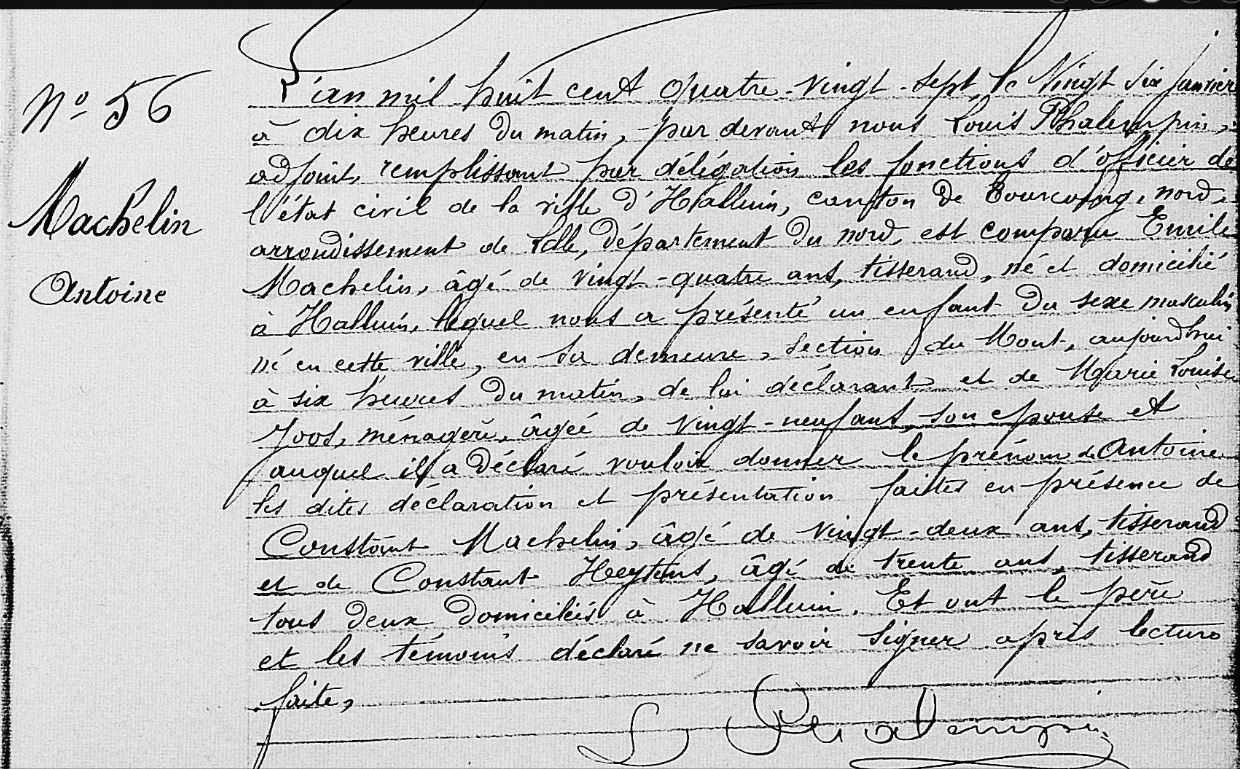 N° 56
Machelin
Antoine
L'an mil huit cent quatre-vingt-sept, le vingt six janvier
à dix heures du matin, par devant nous Louis Phalempin,
adjoint, remplissant par délégation les fonctions d'officier de
l'état civil de la ville d'Halluin, canton de Tourcoing, nord,
arrondissement de Lille, département du nord, est comparu Emile
Machelin, âgé de vingt-quatre ans, tisserand, né et domicilié
à Halluin, lequel nous a présenté un enfant du sexe masculin
né en cette ville, en sa demeure, section du Mont, aujourd'hui
à six heures du matin, de lui déclarant et de Marie Louise
Joos, ménagère, âgée de vingt-neuf ans, son épouse et
auquel il a déclaré vouloir donner le prénom d'Antoine
les dites déclaration et présentation faites en présence de
Constant Machelin, âgé de vingt-deux ans, tisserand
et de Constant Heytens, âgé de trente ans, tisserand
tous deux domiciliés à Halluin. Et ont le père
et les témoins déclaré ne savoir signer après lecture
faite,
L Phalempin